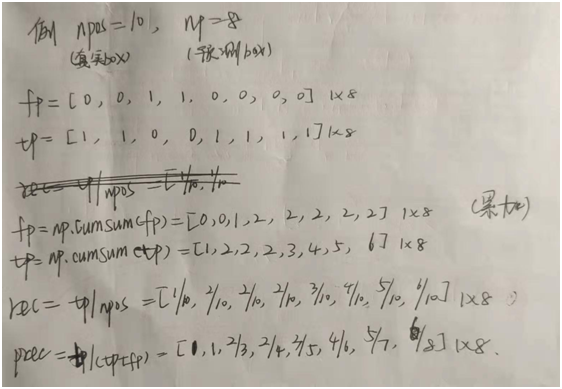 例 npos=10, np=8
(真实box) (预测box)
fp=[0, 0, 1, 1, 0, 0, 0, 0] 1×8
tp=[1, 1, 0, 0, 1, 1, 1, 1] 1×8
rec= tp/npos =[1/10, 1/10
fp=np.cumsum(fp)=[0,0,1,2, 2, 2, 2, 2] 1×8 (累加)
tp=np.cumsum(tp)=[1,2,2,2,3,4,5, 6] 1×8
rec= tp/npos =[1/10, 2/10, 2/10, 2/10, 3/10, 4/10, 5/10, 6/10] 1×8
prec=tp/(tp+fp) = [1, 1, 2/3, 2/4, 3/5, 4/6, 5/7, 6/8] 1×8.